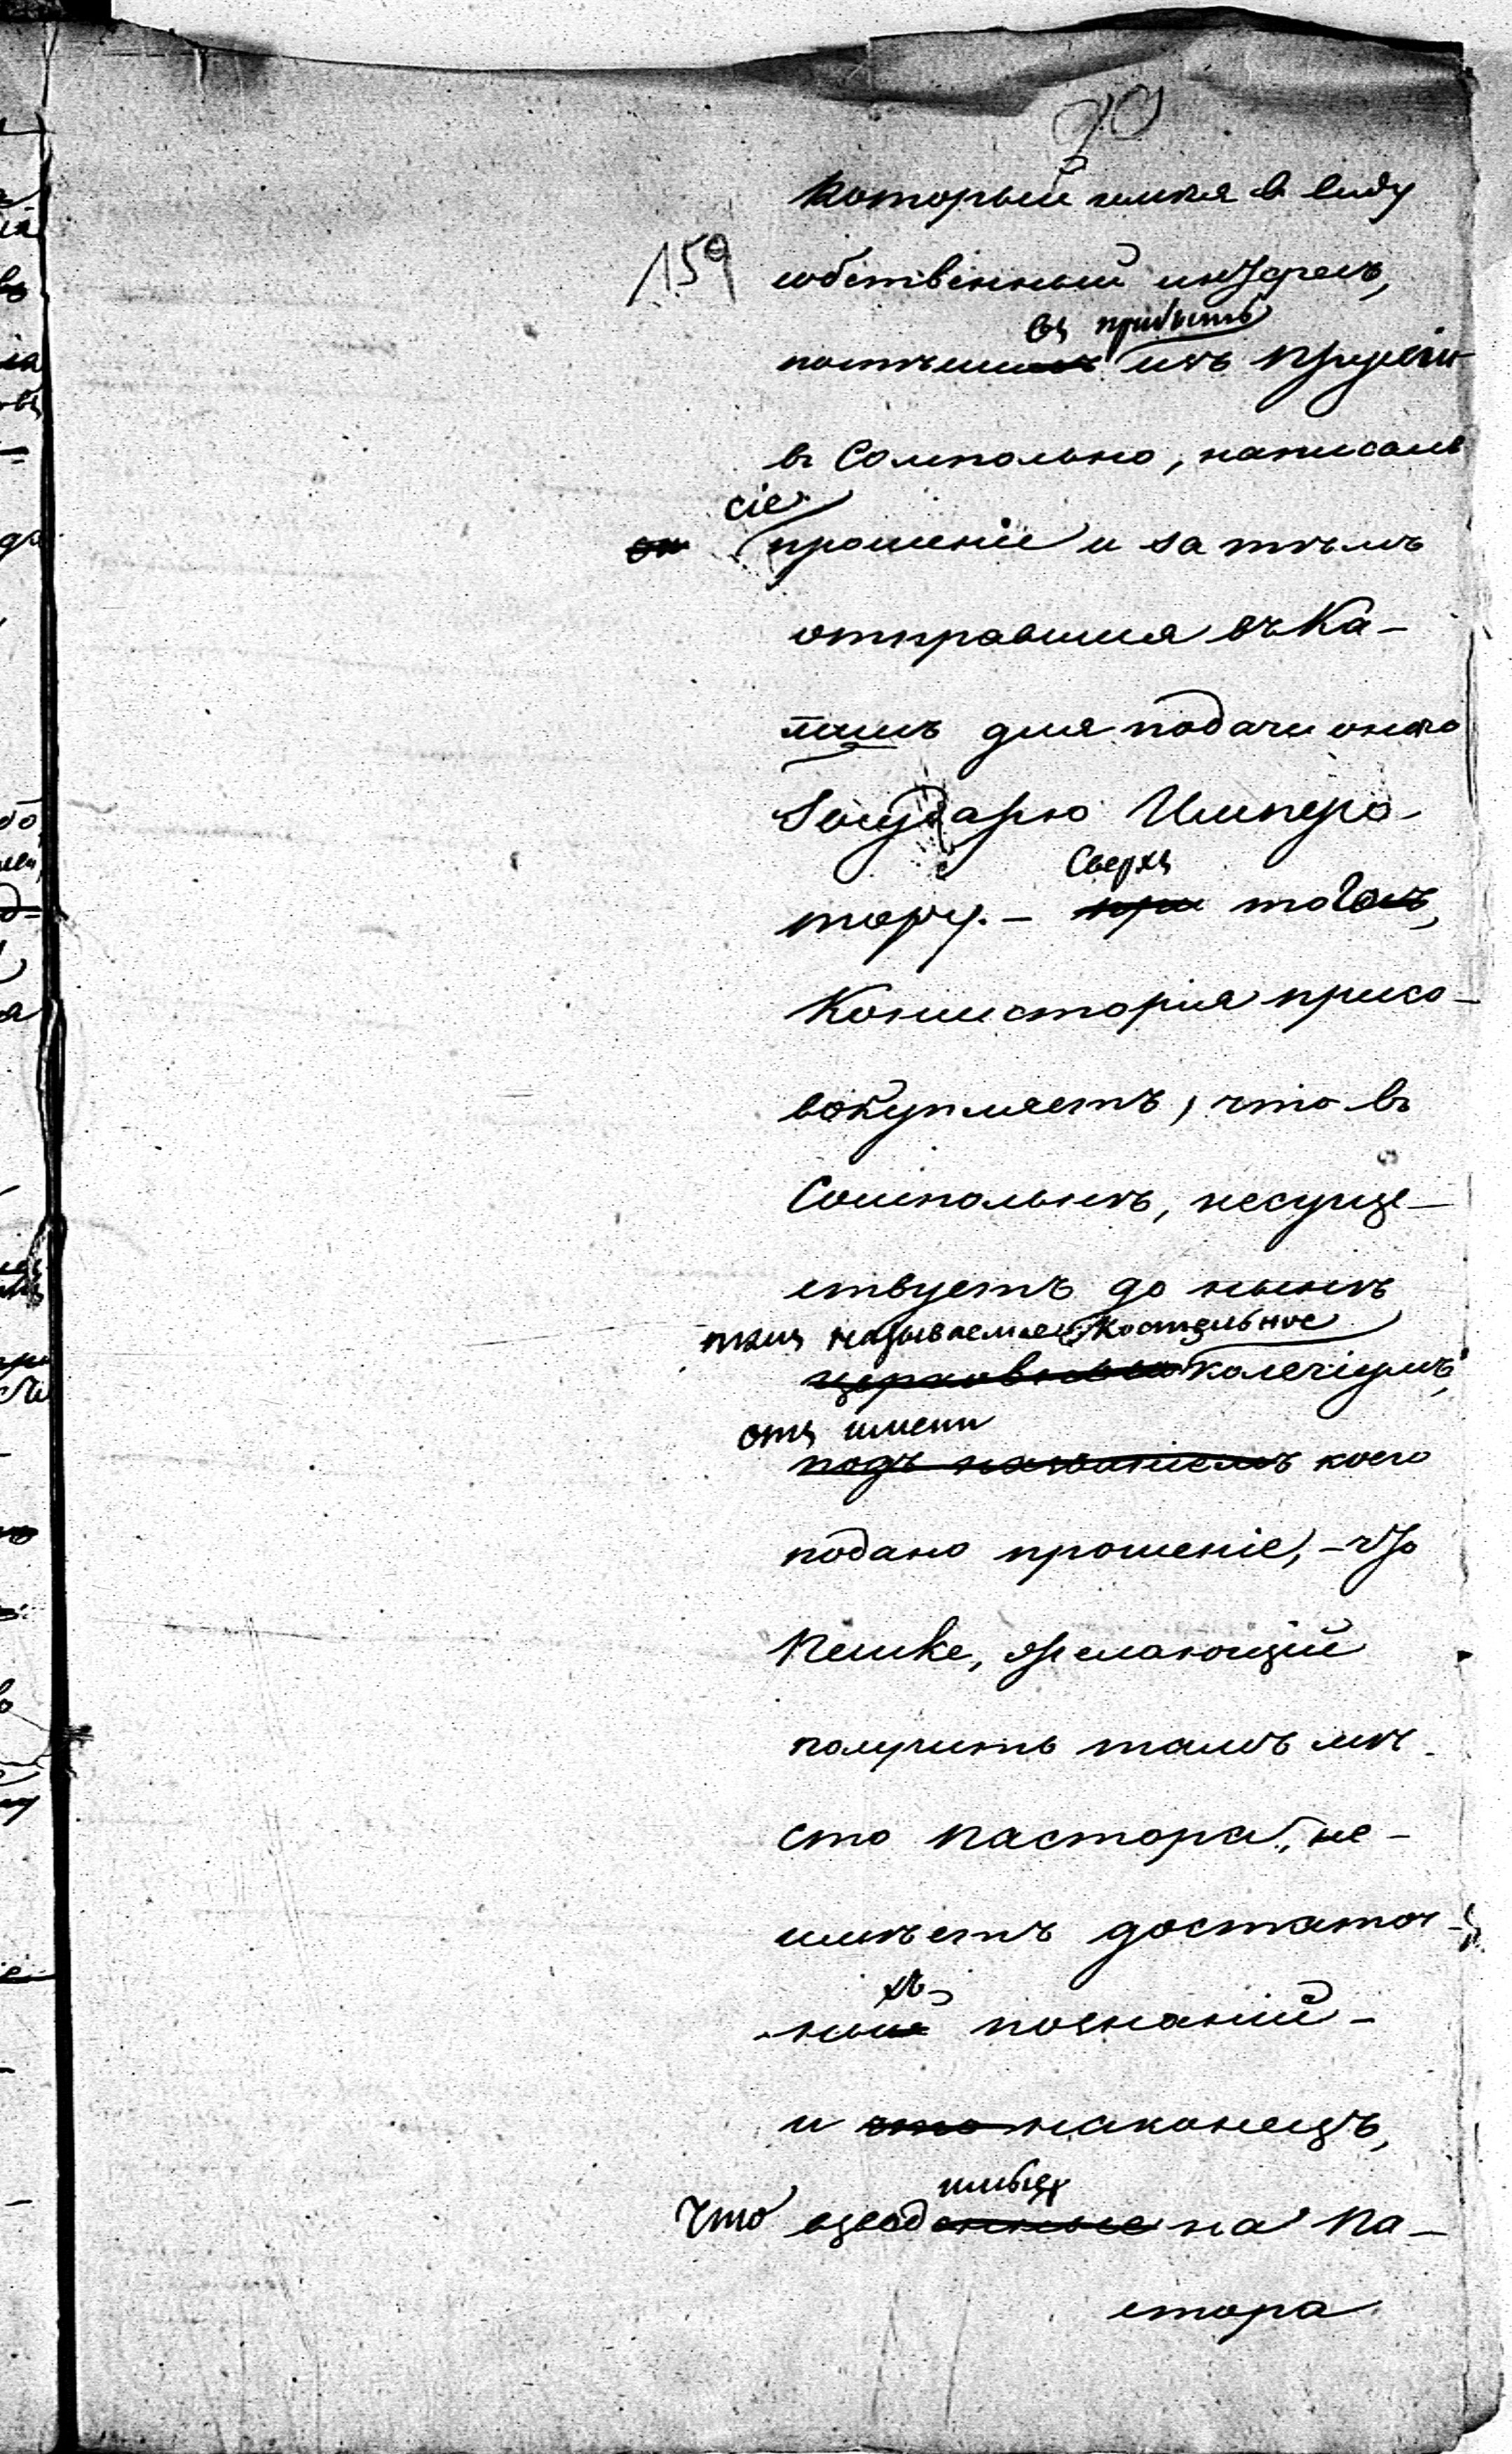 70
который имѣя в виду
159 собственный интересъ,
въ прибыть
поспѣшилъ изъ Пруссіи
въ Сомпольно, написалъ
сіе
он прошеніе и за тѣмъ
отправился въ Ка-
лишъ для подачи онаго
Государю Импера-
Сверхъ
тору. – при того,
Консисторія присо-
вокупляетъ, что въ
Сомпольнѣ, несуще-
ствуетъ до нынѣ
такъ называемое Костельное
церковный колегіумъ,
отъ имени
подъ названіемъ коего
подано прошеніе, – что
Кешке, желающій
получить тамъ мѣ-
сто пастора, не-
имѣетъ достаточ-
хъ
ные познаній –
и что наконецъ,
Что взводимыя на Па-
стора